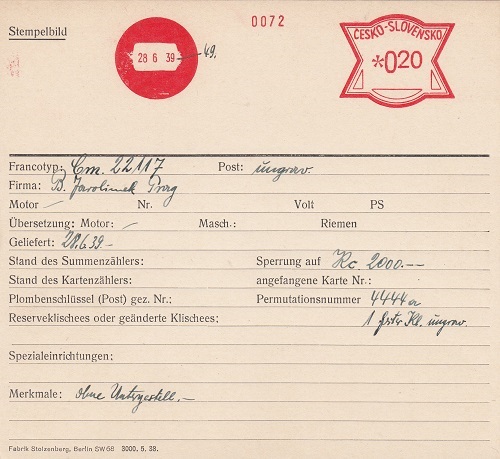 Stempelbild
0072
28 6 39
49.
ČESKO-SLOVENSKO
*020
Francotyp: Cm. 22117 Post: ungrav.
Firma: B. Jarolimek Prag
Motor — Nr. Volt PS
Übersetzung: Motor: — Masch.: Riemen
Geliefert: 28.6.39.-
Stand des Summenzählers: Sperrung auf Kc. 2000.--
Stand des Kartenzählers: angefangene Karte Nr.:
Plombenschlüssel (Post) gez. Nr.: Permutationsnummer 4444a
Reserveklischees oder geänderte Klischees: 1 Kl. ungrav.
Spezialeinrichtungen:
Merkmale: ohne Untergestell.-
Fabrik Stolzenberg, Berlin SW68 3000. 5. 38.